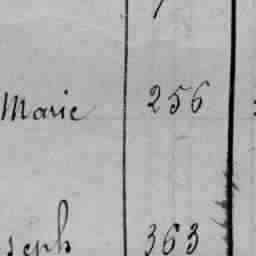 Marie 256
seph 363